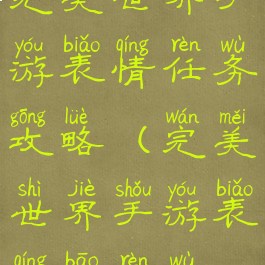 完美世界手
yóu biǎo qíng rèn wù
游表情任务
gōng lüè wán měi
攻略（完美
shì jiè shǒu yóu biǎo
世界手游表
qíng bāo rèn wù